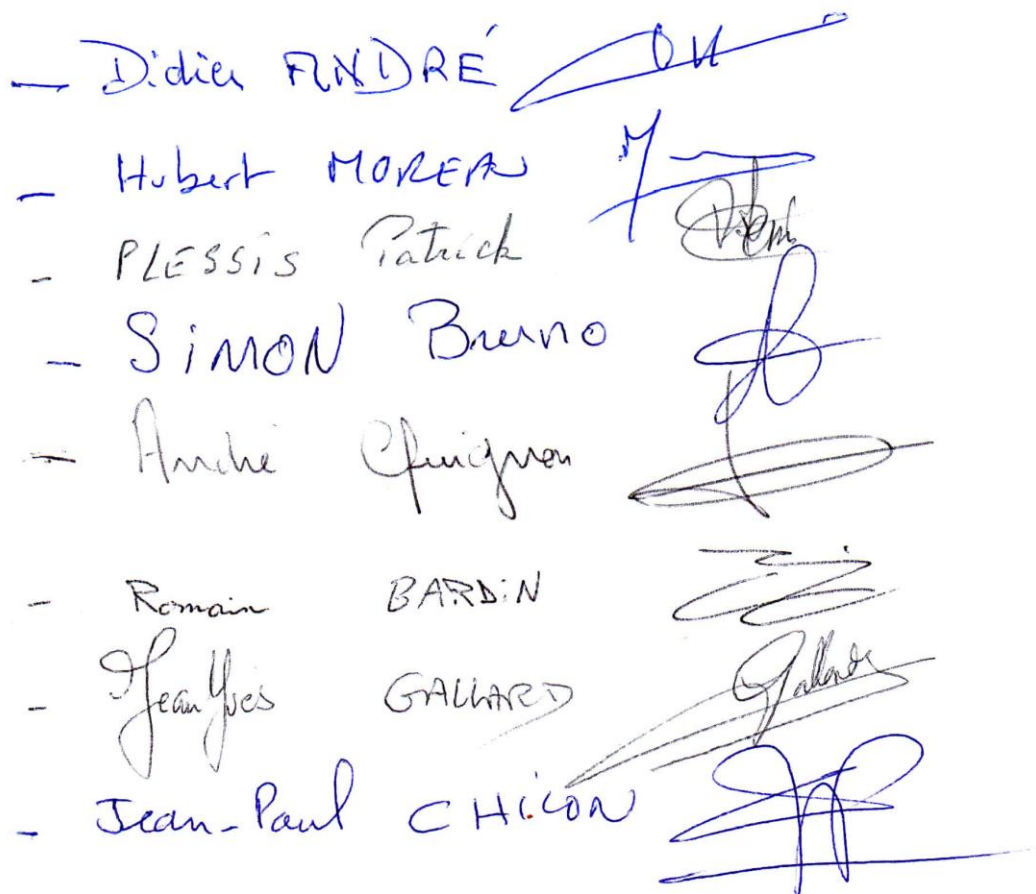 - Didier ANDRÉ
- Hubert MOREAU
- PLESSIS Patrick
- SIMON Bruno
- André
- Romain BARDIN
- Jean Yves GALLARD Gallard
- Jean-Paul CHILON